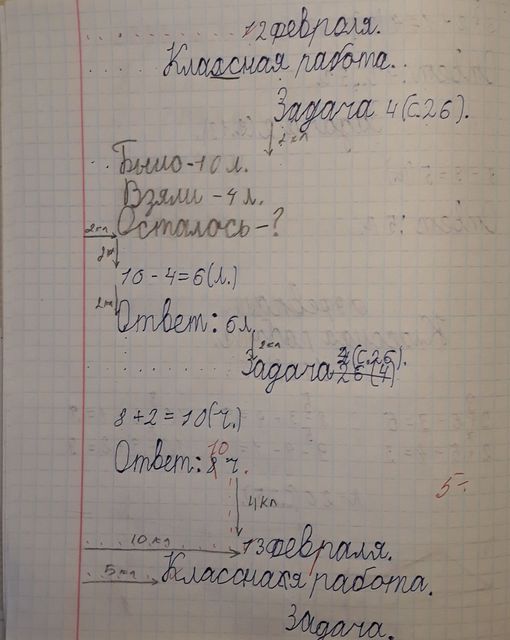 12 февраля.
Классная работа.
Задача 4(с.26).
2 кл
Было-10 л.
Взяли-4 л.
2кл Осталось-?
2кл
10-4=6(л.)
2кл
Ответ: 6 л.
2кл
4(с.26).
Задача 26(4)
8+2=10(ч.)
10
Ответ: 8 ч.
4кл
5-
10 кл 13 февраля.
5 кл Класснакя работа.
Задача.